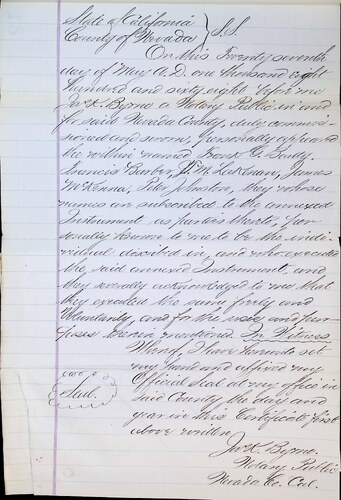 State of California
County of Nevada } S.S.
On this Twenty seventh
day of May A.D. one thousand eight
hundred and sixty eight before me
Jas. K. Byrne a Notary Public in and
for said Nevada County, duly commis-
sioned and sworn, personally appeared
the within named Frank G.
Francis Barber, James
McKenna, Peter Johnston, they whose
names are subscribed to the annexed
Instrument as parties thereto, per-
sonally known to me to be the indi-
viduals described in, and who executed
the said annexed Instrument and
they severally acknowledged to me that
they executed the same freely and
voluntarily, and for the uses and pur-
poses therein mentioned. In Witness
Whereof, I have hereunto set
my hand and affixed my
Official Seal at my office in
Seal.
said County the day and
year in this Certificate first
above written,
Jas. K. Byrne
Notary Public
Nevada Co. Cal.